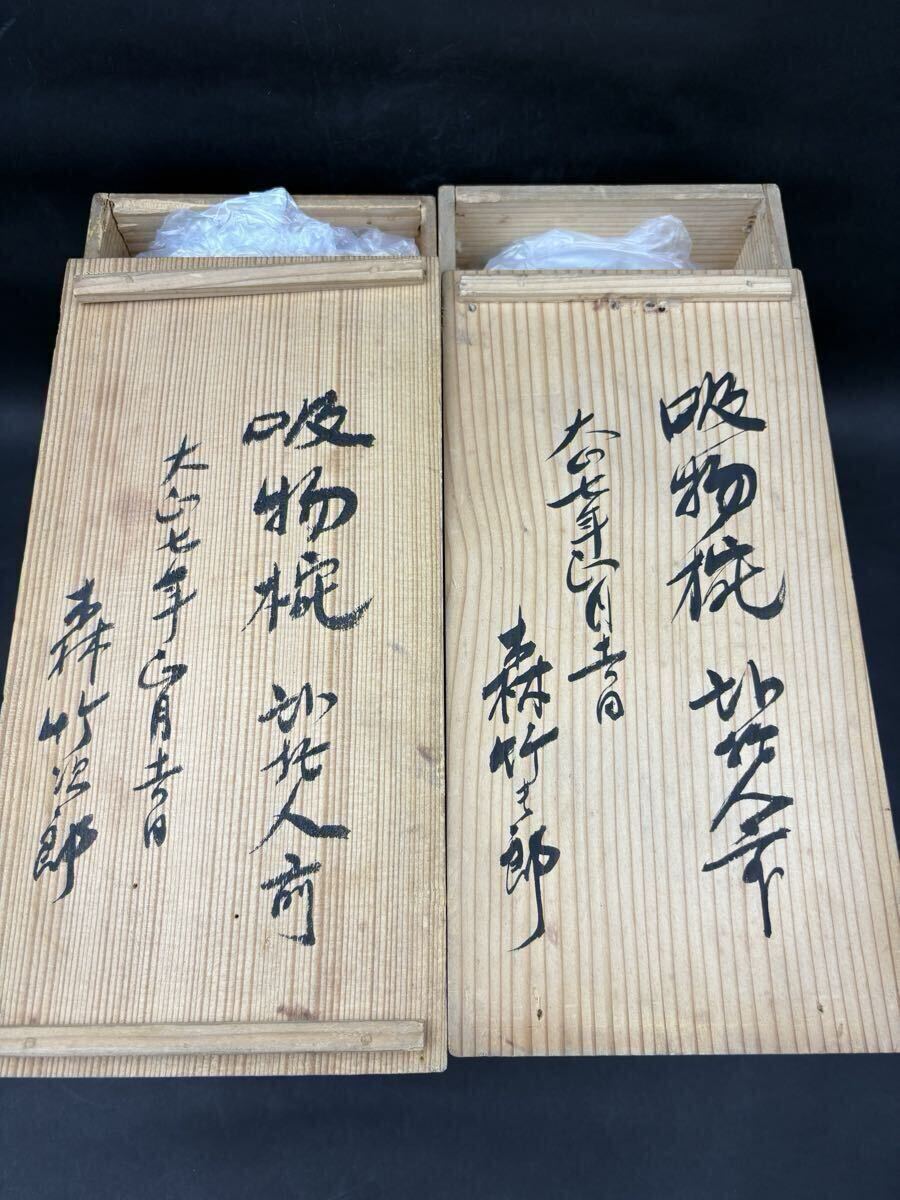 吸物椀 弐拾人前
大正七年正月吉日
森竹次郎
吸物椀 弐拾人前
大正七年正月吉日
森竹次郎